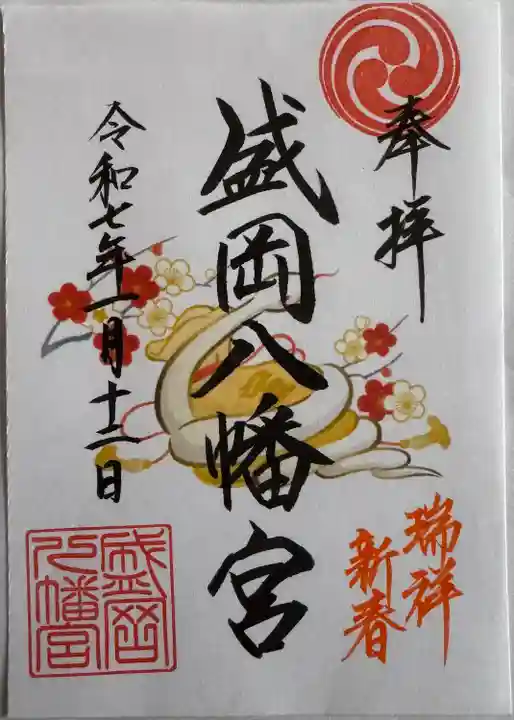 奉拝
盛岡八幡宮
令和七年一月十二日
瑞祥
新春
盛岡八幡宮